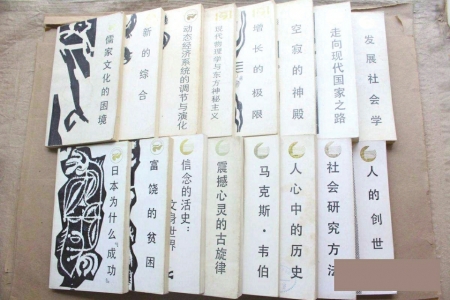 儒家文化的困境
新的综合
动态经济系统的调节与演化
现代物理学与东方神秘主义
增长的极限
空寂的神殿
走向现代国家之路
发展社会学
日本为什么“成功”
富饶的贫困
信念的活史：
文身世界
震撼心灵的古旋律
马克斯·韦伯
人心中的历史
社会研究方法
人的创世